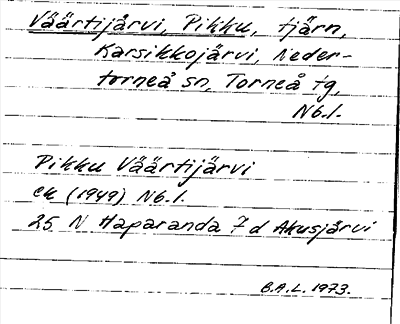 Väärtijärvi, Pikku, tjärn,
Karsikkojärvi, Neder-
torneå sn, Torneå tg,
Nb.l.
Pikku Väärtijärvi
ek (1949) Nb.l.
25 N Haparanda 7d Akusjärvi
B.A.L. 1973.